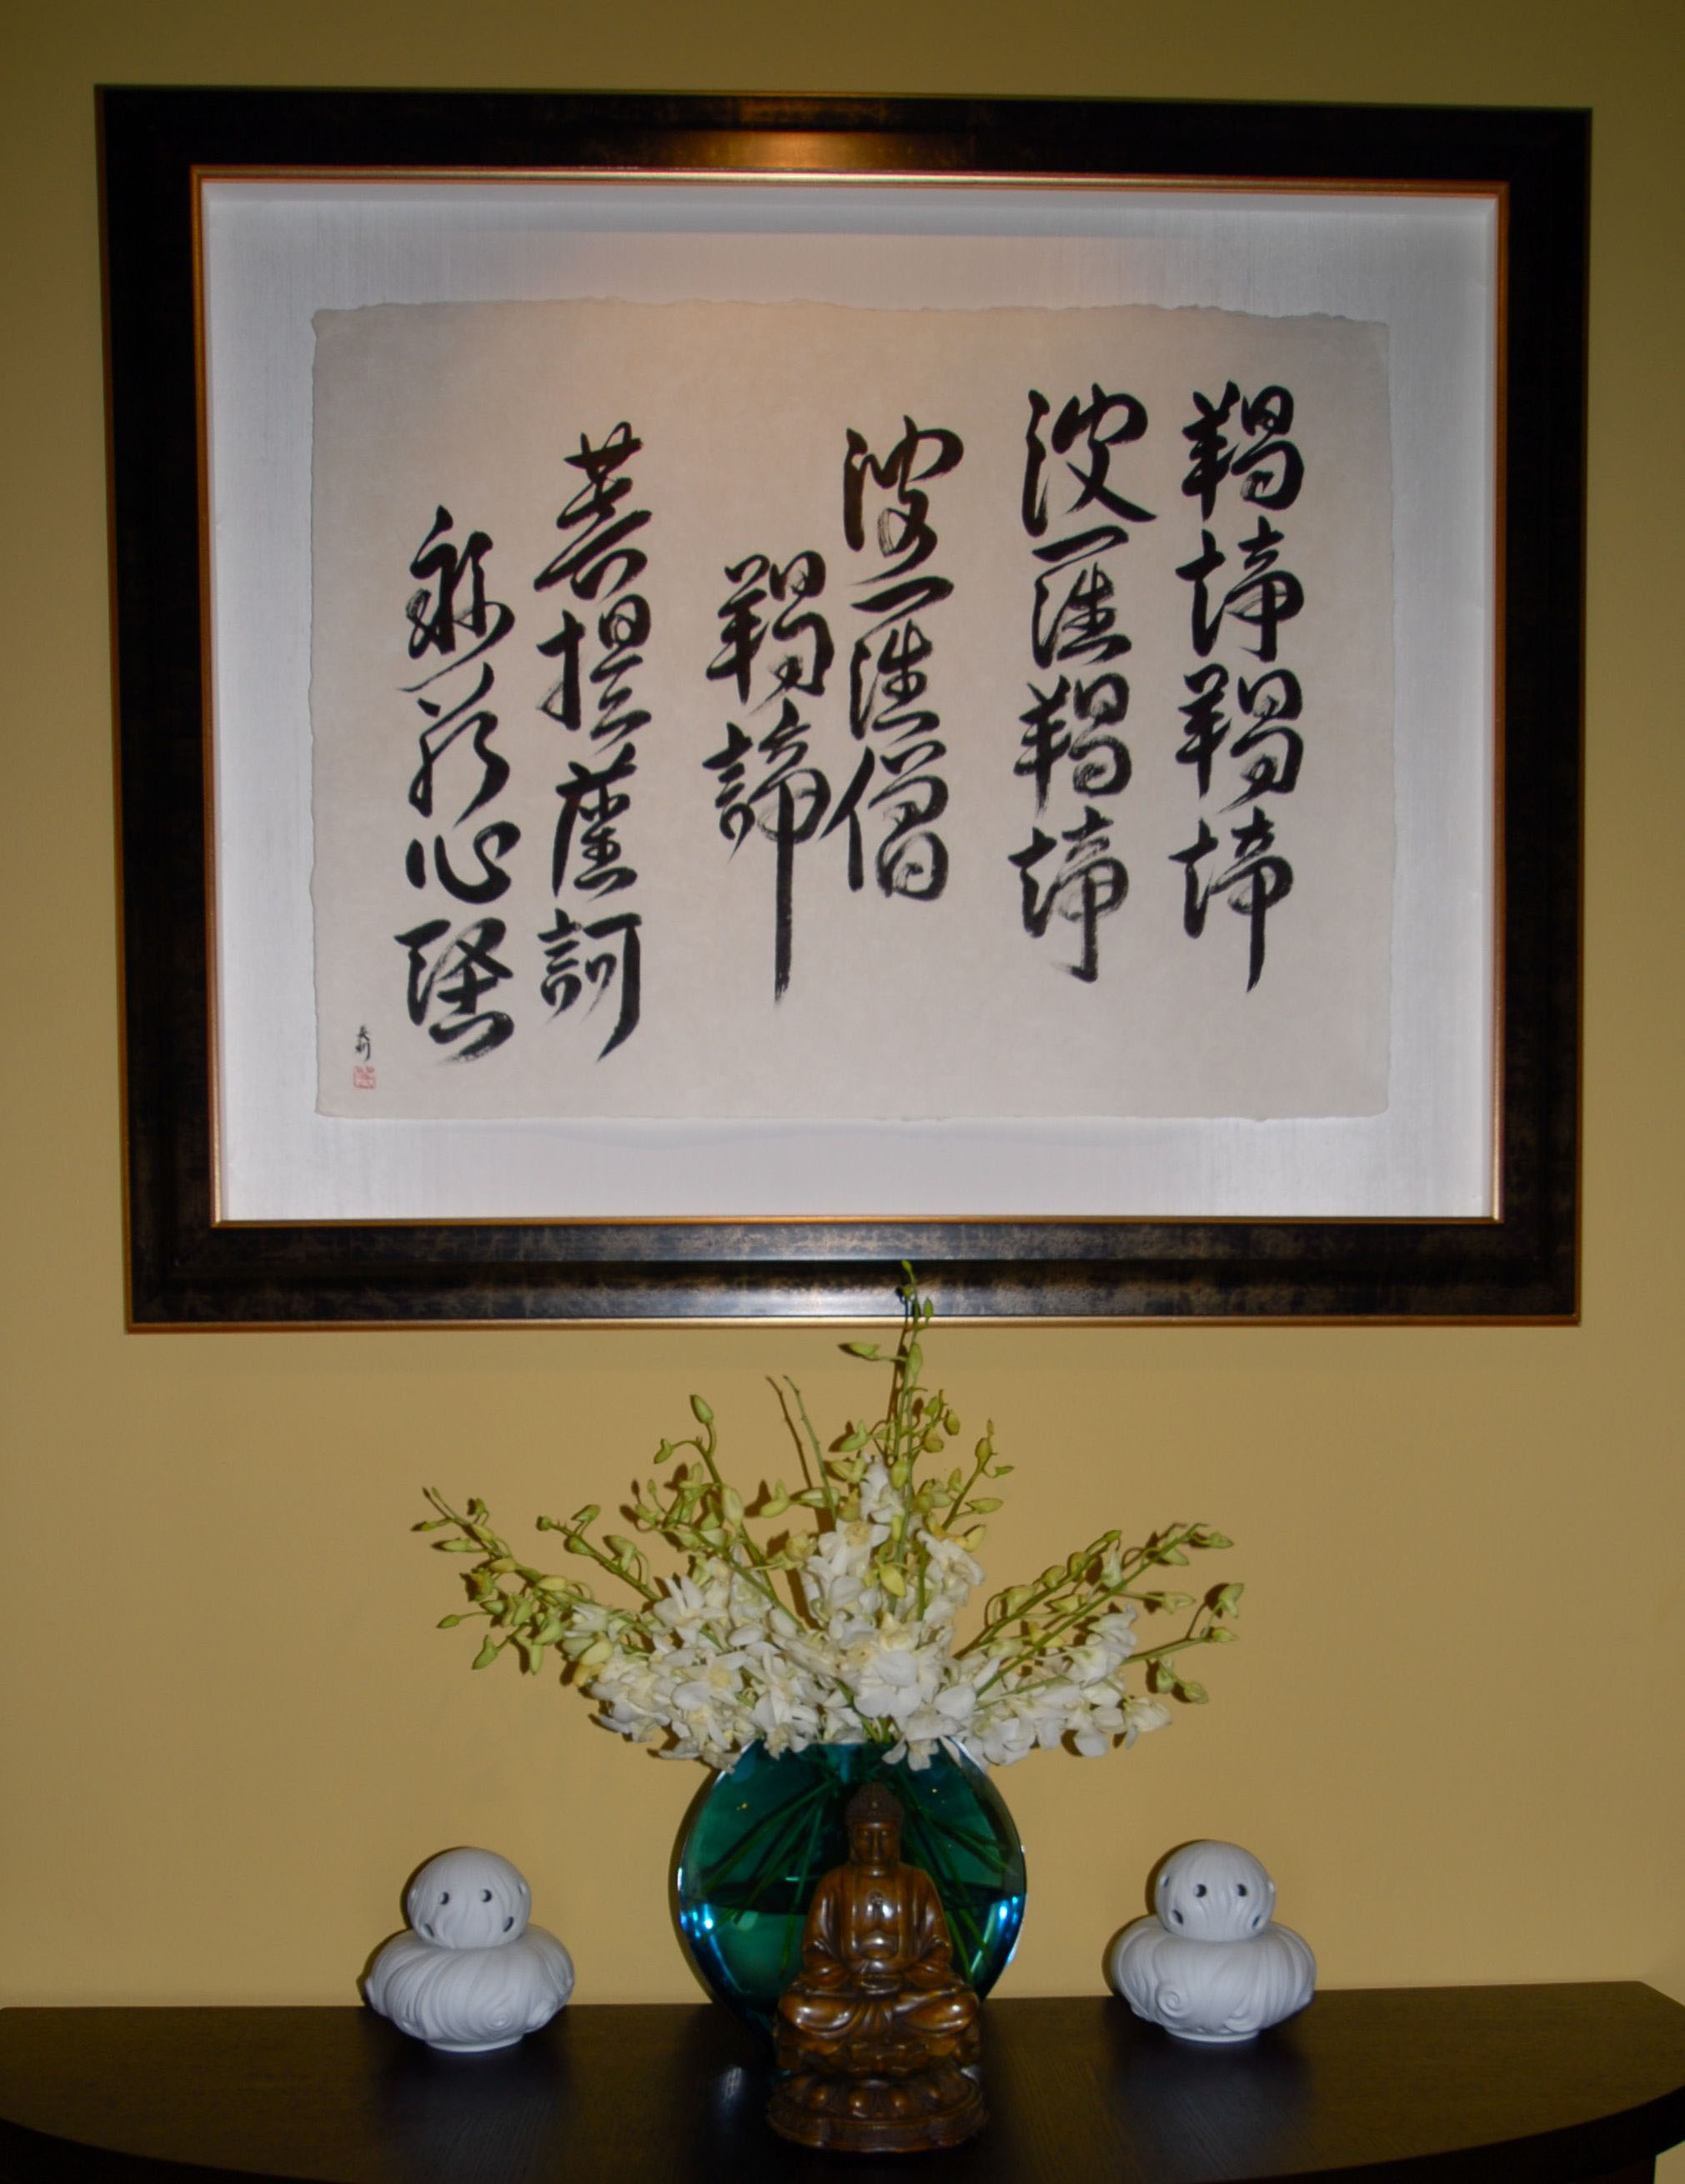 羯諦羯諦
波羅羯諦
波羅僧
羯諦
菩提薩訶
般若心経